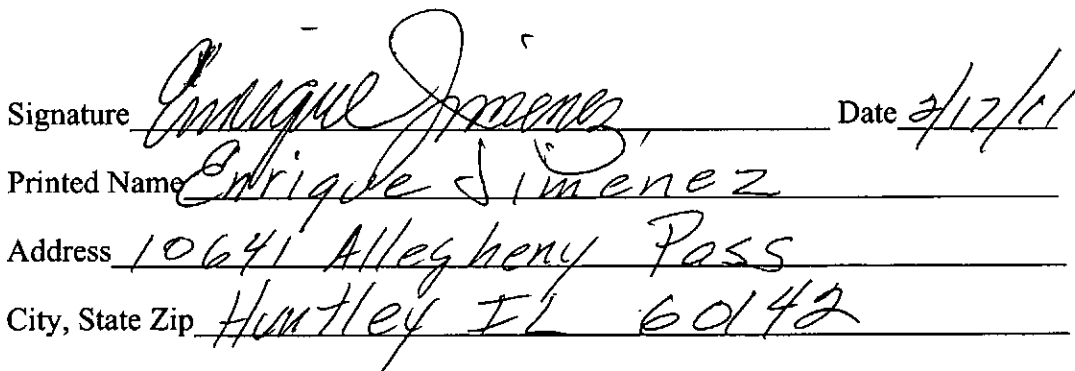 Signature Enrique Jimenez Date 2/17/11
Printed Name Enrique Jimenez
Address 10641 Allegheny Pass
City, State Zip Huntley IL 60142